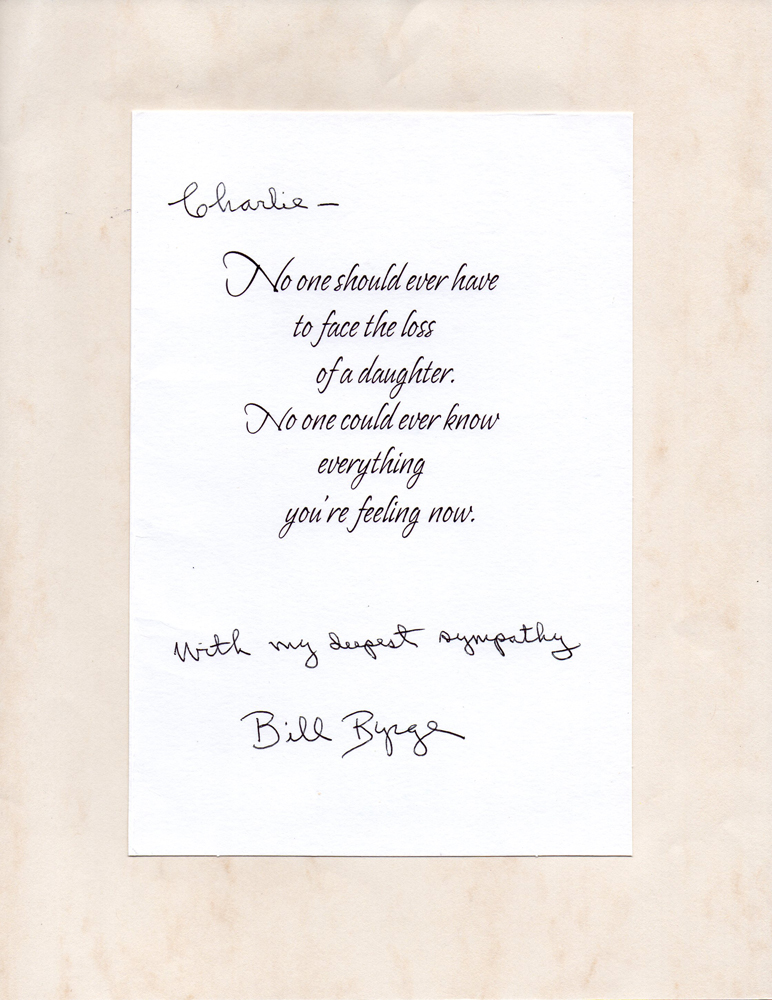 Charlie —
No one should ever have
to face the loss
of a daughter.
No one could ever know
everything
you're feeling now.
With my deepest sympathy
Bill Byrge